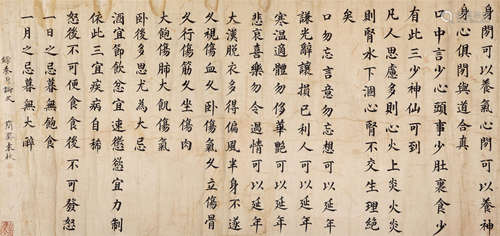 身閒可以養氣心閒可以養神
身心俱閒與道合真
口中言少心頭事少肚裹食少
有此三少神仙可到
凡人思慮多則心火上炎火炎
則腎水下涸心腎不交生理絕
矣
口勿忘言意勿忘想可以延年
謙光辭讓損己利人可以延年
寒溫適體勿侈華艷可以延年
悲哀喜樂勿令過情可以延年
大漢脫衣多得偏風半身不遂
久視傷血久卧傷氣久立傷骨
久行傷筋久坐傷肉
大飽傷肺大飢傷氣
卧後多思尤為大忌
酒宜節飲忿宜速懲慾宜力制
依此三宜疾病自稀
怒後不可便食食後不可發怒
一日之忌暮無飽食
一月之忌暮無大醉